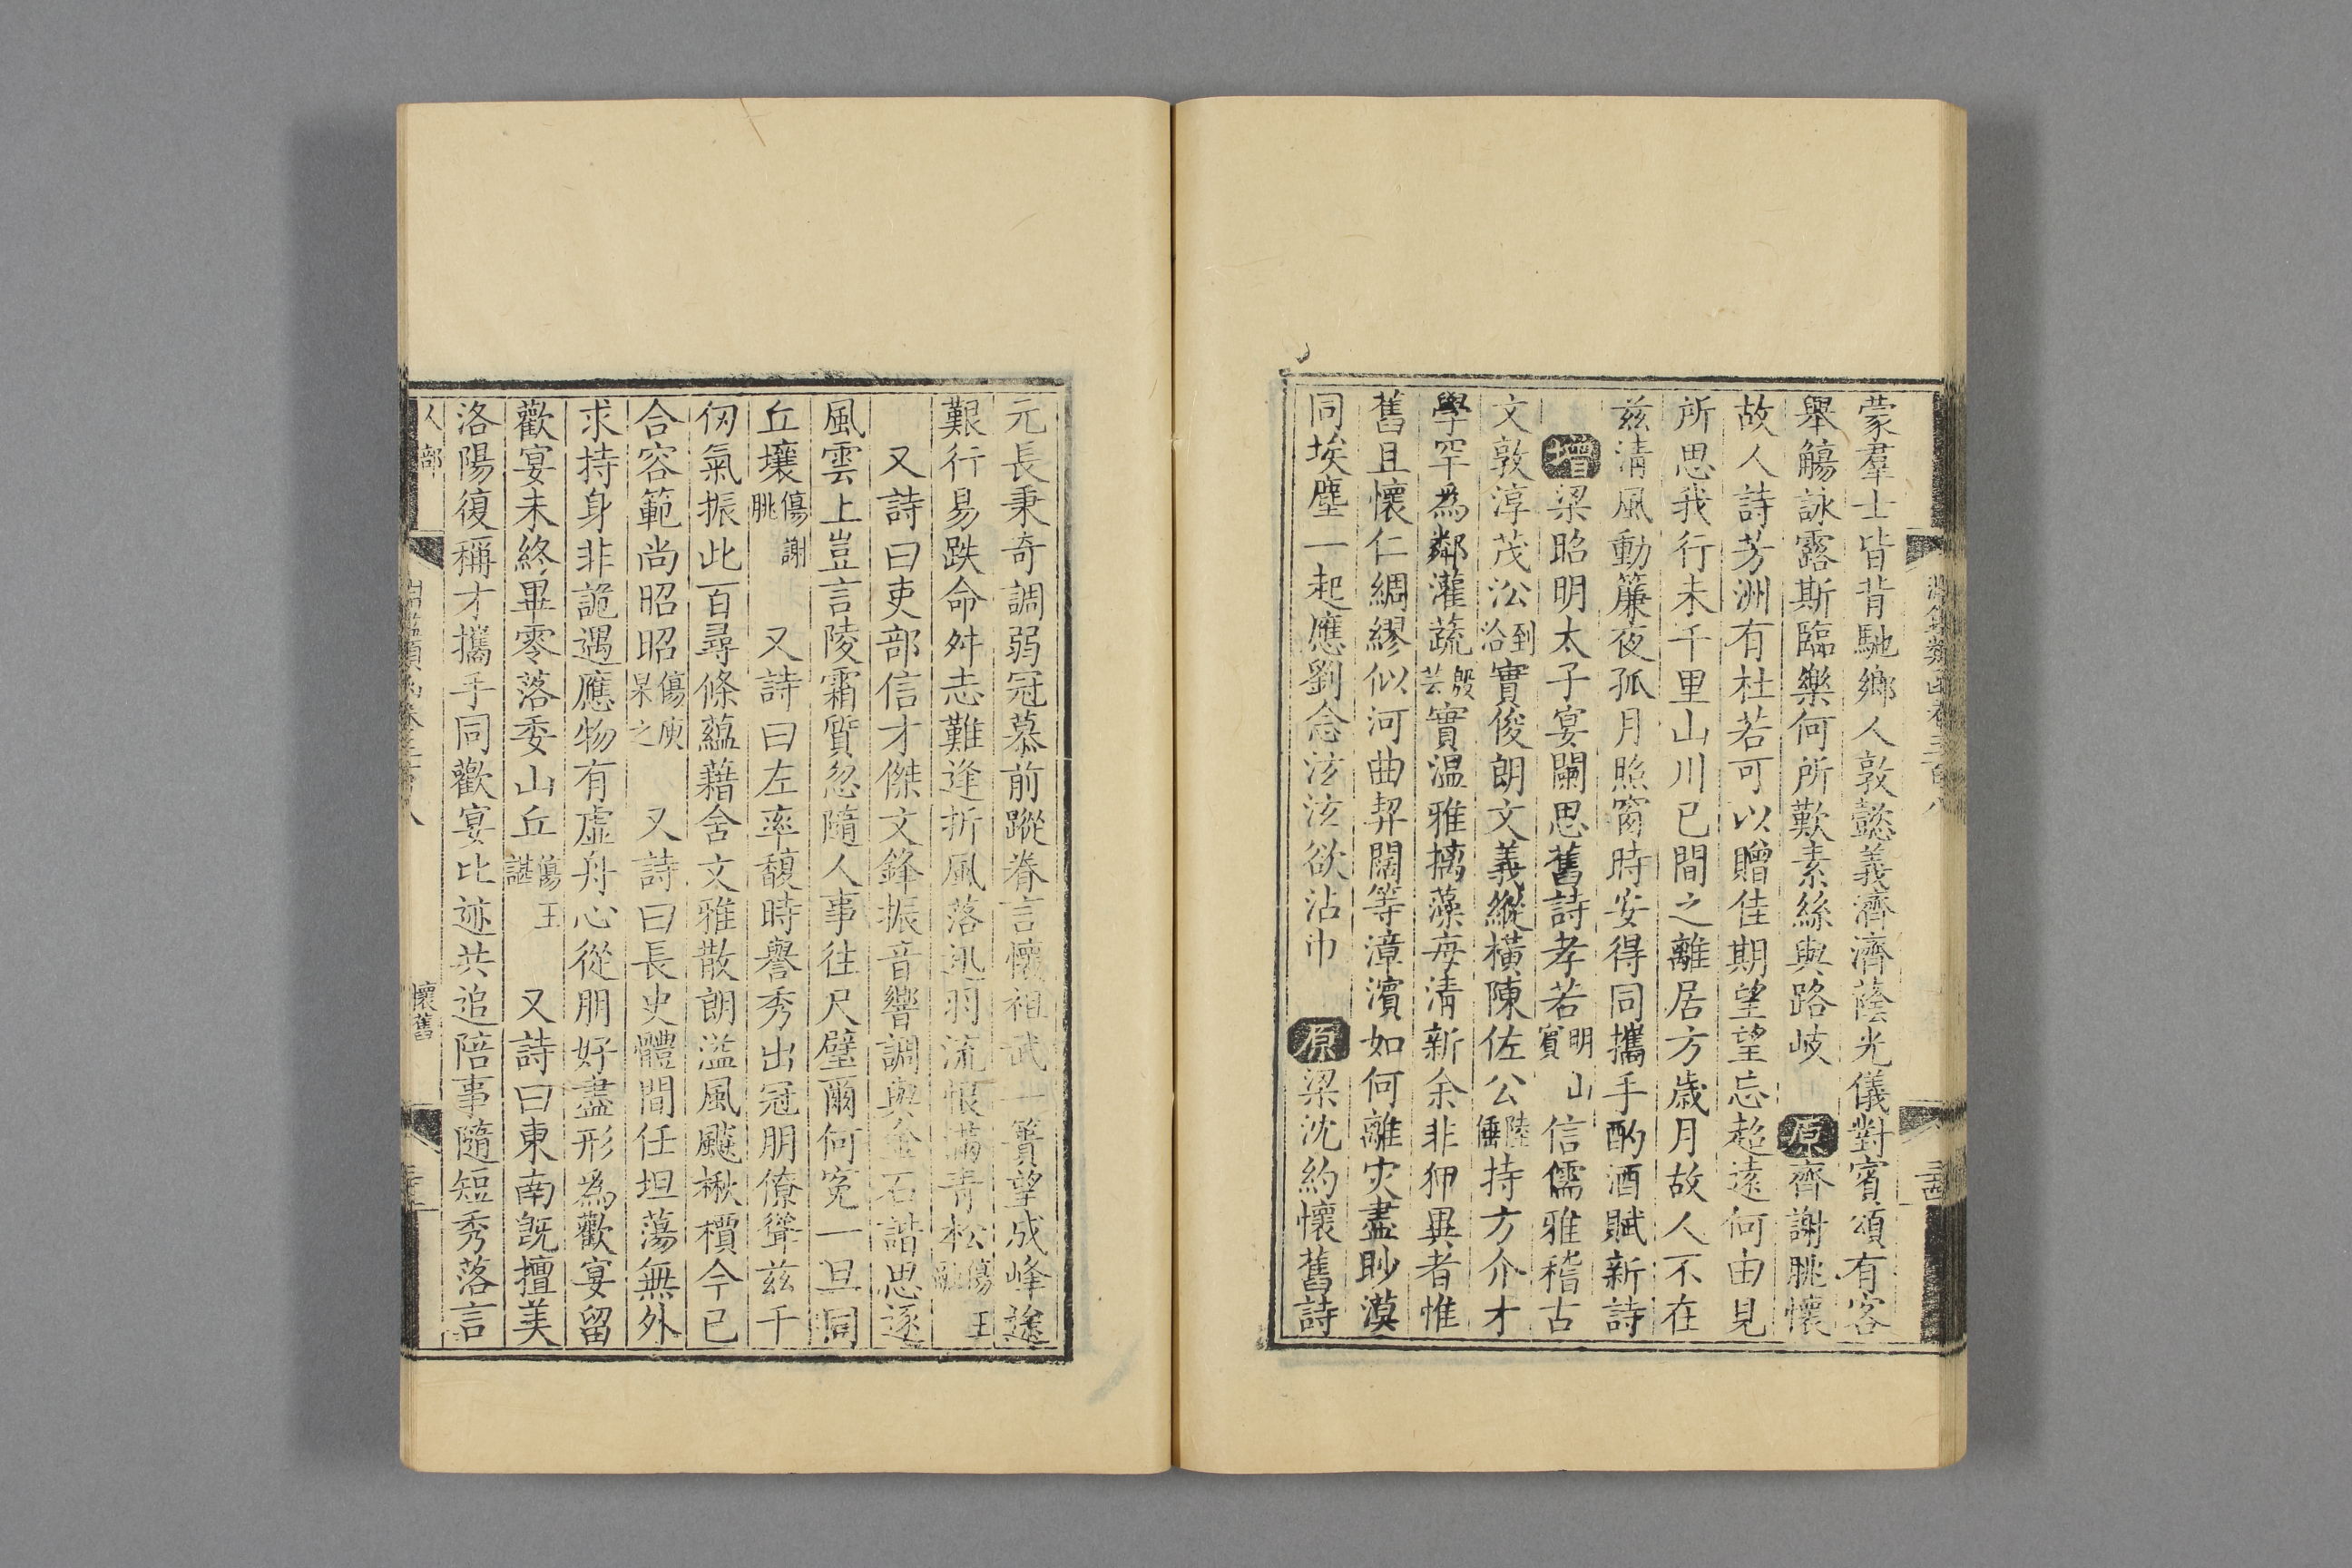 蒙羣士皆背馳鄉人敦懿義濟濟蔭光儀對賓頌有客
舉觴詠露斯臨樂何所歎素絲與路岐 原 齊謝朓懷
故人詩芳洲有杜若可以贈佳期望望忘超遠何由見
所思我行未千里山川已間之離居方歲月故人不在
兹清風動簾夜孤月照窗時安得同攜手酌酒賦新詩
增 梁昭明太子宴闌思舊詩孝若明山賓信儒雅稽古
文敦淳茂沿到洽實俊朗文義縱橫陳佐公陸倕持方介才
學罕為鄰灌蔬殷芸實溫雅摛藻每清新余非狎異者惟
舊且懷仁綢繆似河曲契闊等漳濱如何離灾盡眇漠
同埃塵一起應劉念泫泫欲沾巾 原 梁沈約懷舊詩
元長秉奇調弱冠慕前蹤眷言懷祖武一簣望成峰途
艱行易跌命舛志難逢折風落迅羽流恨滿青松傷王融
又詩曰吏部信才傑文鋒振音響調與金石諧思逐
風雲上豈言陵霜質忽隨人事往尺璧爾何冤一旦同
丘壤傷謝朓 又詩曰左率馥時譽秀出冠朋僚聳兹千
仞氣振此百尋條蘊藉含文雅散朗溢風飈楸檟今已
合容範尚昭昭傷庾杲之 又詩曰長史體閒任坦蕩無外
求持身非詭遇應物有虛舟心從朋好盡形為歡宴留
歡宴未終畢零落委山丘傷王諶 又詩曰東南既擅美
洛陽復稱才攜手同歡宴比迹共追陪事隨短秀落言
人部 懷舊